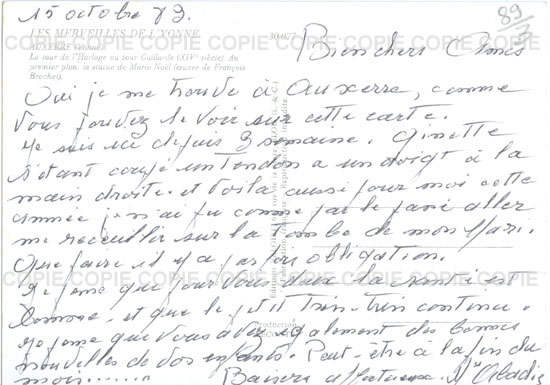 15 octobre 89.
89
LES MERVEILLES DE L'YONNE
30.077
AUXERRE (Yonne)
La tour de l'Horloge ou tour Gaillarde (XIVe siècle). Au
premier plan, la statue de Marie Noël (œuvre de François
Brochet).
COPIE COPIE COPIE COPIE COPIE COPIE COPIE COPIE
Bien chers Amis
Oui je me trouve à Auxerre, comme
vous pouvez le voir sur cette carte.
Je suis ici depuis 3 semaine. Ginette
s'étant coupé un tendon a un doigt à la
main droite. et voila aussi pour moi cette
année je n'ai pu comme par le passé aller
me recueillir sur la tombe de mon Mari.
Que faire il y a pas obligation.
COPIE COPIE COPIE COPIE COPIE COPIE COPIE COPIE
Je pense que pour vous deux la santé est
bonne. et que le petit train-train continue.
Je pense que vous avez également des bonnes
nouvelles de vos enfants. Peut-être à la fin du
mois......
Baisers affectueux. Abadie